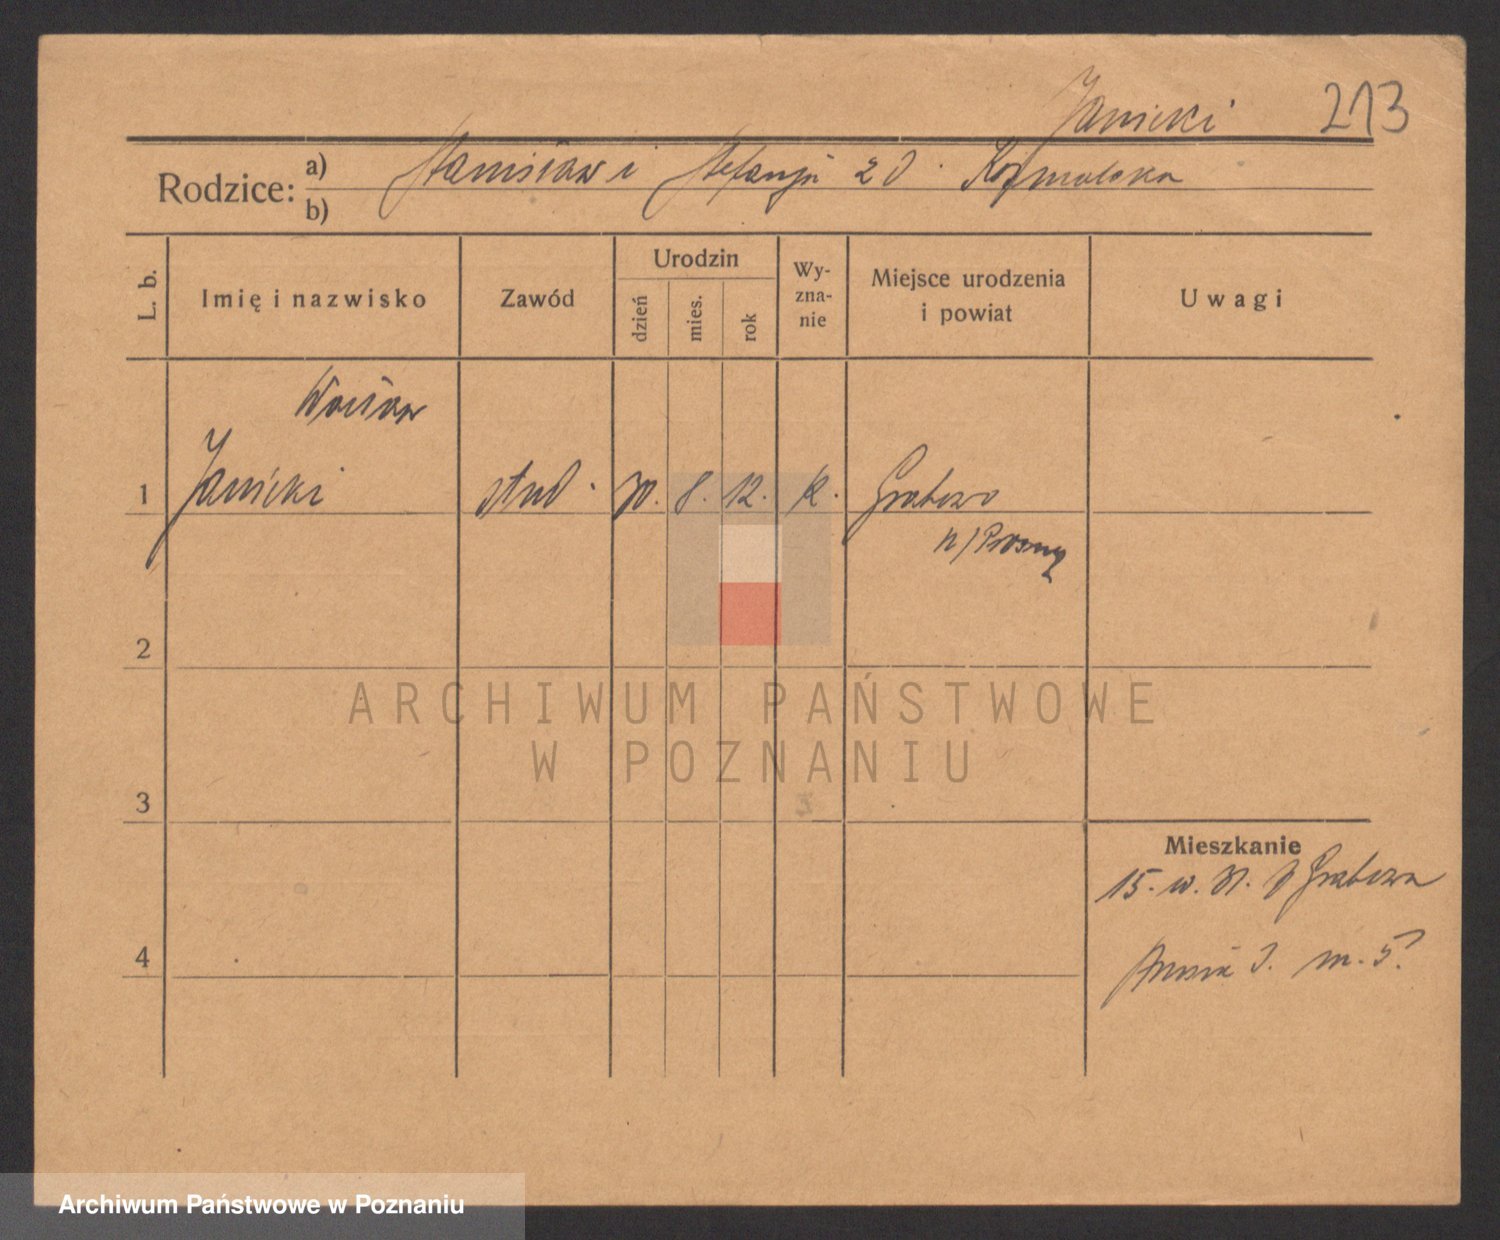 Janicki 213
Rodzice: a) Stanisław i Stefanja z d.
b)
L. b. Imię i nazwisko Zawód Urodzin dzień mies. rok Wy-zna-nie Miejsce urodzenia i powiat Uwagi
Wacław
1 Janicki stud. 8. 12. k. Grabowo
n/Prosną
2
ARCHIWUM PAŃSTWOWE
W POZNANIU
3
Mieszkanie
15. w. 31. z Grabowa
4
m. 5.
Archiwum Państwowe w Poznaniu